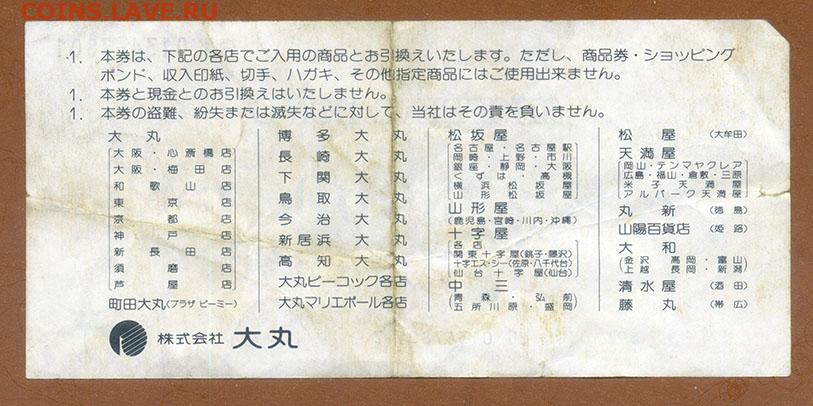 COINS.LAVE.RU
1. 本券は、下記の各店でご入用の商品とお引換えいたします。ただし、商品券・ショッピング
ボンド、収入印紙、切手、ハガキ、その他指定商品にはご使用出来ません。
1. 本券と現金とのお引換えはいたしません。
1. 本券の盗難、紛失または滅失などに対して、当社はその責を負いません。
大丸
大阪・心斎橋店
大阪・梅田店
和歌山店
東京店
京都店
神戸店
新長田店
須磨店
芦屋店
町田大丸(プラザ ビーミー)
博多大丸
長崎大丸
下関大丸
鳥取大丸
今治大丸
新居浜大丸
高知大丸
大丸ピーコック各店
大丸マリエポール各店
松坂屋
名古屋・名古屋駅
岡崎・上野・市川
銀座・静岡・大阪
くずは・高槻
横浜松坂屋
山形松坂屋
山形屋
(鹿児島・宮崎・川内・沖縄)
十字屋
各店
関東十字屋(銚子・藤沢)
十字エス・シー(佐原・八千代台)
仙台十字屋(仙台)
中三
青森・弘前
五所川原・盛岡
松屋 (大牟田)
天満屋
岡山・テンマヤクレア
広島・福山・倉敷・三原
米子天満屋
アルパーク天満屋
丸新 (徳島)
山陽百貨店 (姫路)
大和
金沢 高岡・富山
上越 長岡・新潟
清水屋 (酒田)
藤丸 (帯広)
株式会社 大丸